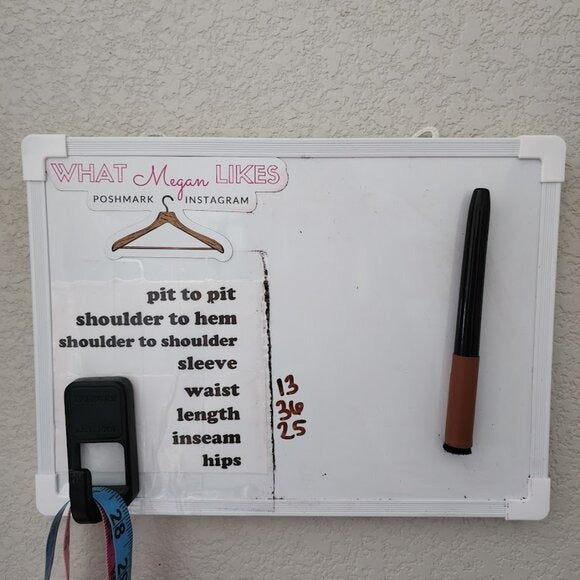 WHAT Megan LIKES
POSHMARK INSTAGRAM
pit to pit
shoulder to hem
shoulder to shoulder
sleeve
waist 13
length 36
inseam 25
hips
28